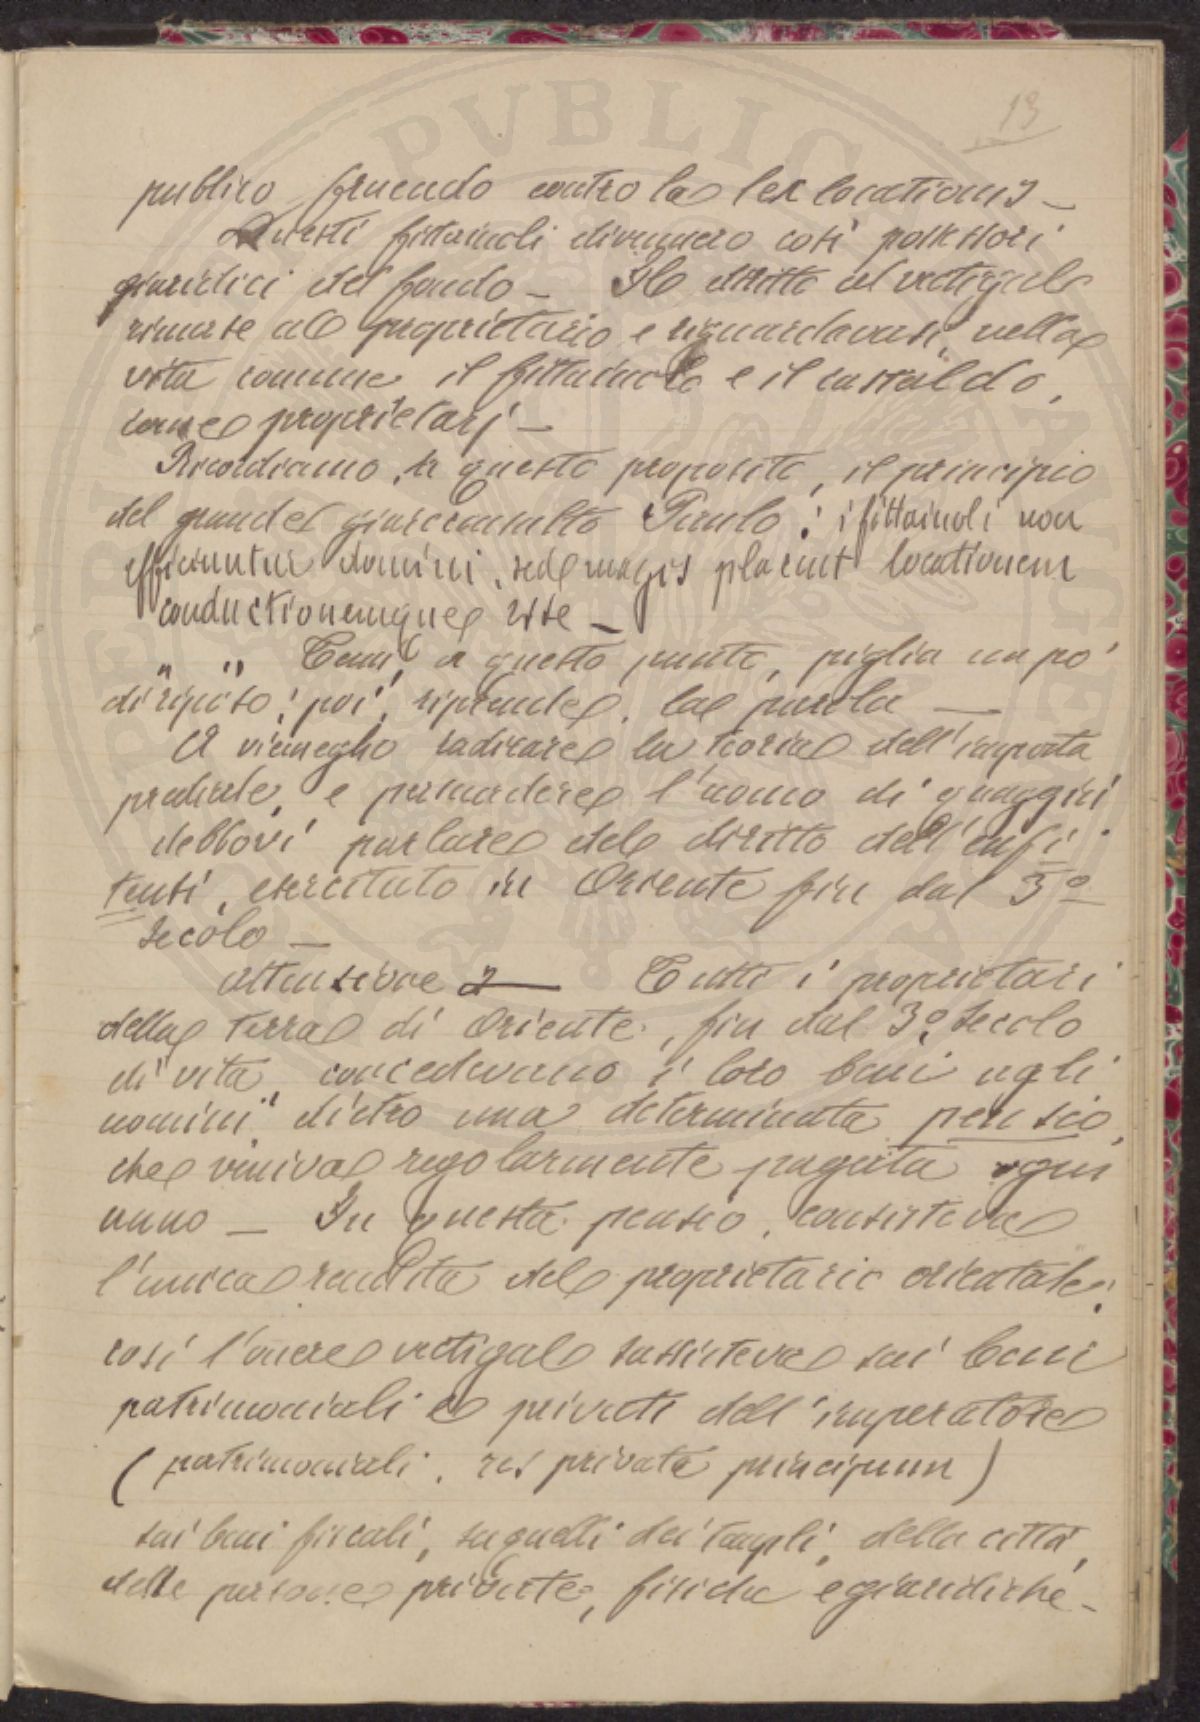 13
publico fruendo contro la lex locationis —
Questi fittaiuoli divennero così possessori
giuridici del fondo — Il diritto al vectigale
rimase al proprietario e riguardavasi, nella
vita comune il fittaiuolo e il castaldo,
come proprietarj —
Ricordiamo, a questo proposito, il principio
del grande giureconsulto Paulo: i fittaiuoli non
efficiuntur domini, sed magis placuit locationem
conductionemque esse —
" " a questo punto, piglia un po'
di riposo; poi, riprende, la parola —
A viemeglio radicare la teoria dell'imposta
prediale, e persuadere l'uomo di
debbovi parlare del diritto dell'enfi
teusi, esercitato in Oriente fin dal 3º
secolo —
attensione — Tutti i proprietari
della terra di Oriente, fin dal 3º secolo
di vita, concedevano i loro beni agli
uomini, dietro una determinata pensio,
che veniva regolarmente pagata ogni
anno — In questa pensio, consisteva
l'unica rendita del proprietario orientale;
così l'onere vectigale sussisteva sui beni
patrimoniali e privati dell'imperatore
(patrimoniali, res privata principum)
sui beni fiscali, su quelli dei templi, della città,
delle persone private, fisiche e giuridiche —
PUBLICA